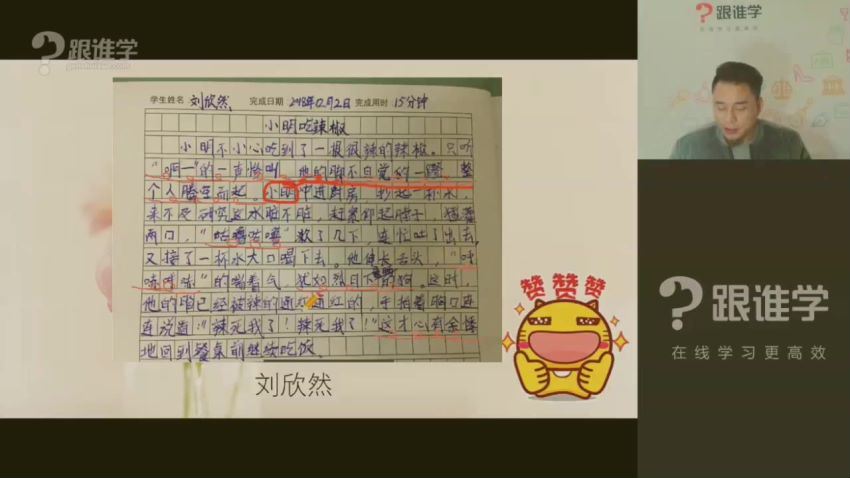 跟谁学
genshuixue.com
学生姓名 刘欣然 完成日期 2018年12月2日 完成用时 15分钟
小明吃辣椒
小明不小心吃到了一根很辣的辣椒。只听
“啊—”的一声惨叫,他的脚不自觉的一蹬,整
个人腾空而起。小明冲进厨房,抄起一杯水,
来不及研究这水脏不脏,赶紧仰起脖子,猛灌
两口,“咕噜咕噜”漱了几下,连忙吐了出去,
又接了一杯水大口喝下去。他伸长舌头,“呼
哧哧哧”的喘着气,犹如烈日下的狗。这时,
他的脸已经被辣的通红通红的,手拍着胸口连
连说道:“辣死我了!辣死我了!”这才心有余悸
地回到餐桌前继续吃饭。
刘欣然
赞赞赞
跟谁学
在线学习更高效
跟谁学
在线学习更高效